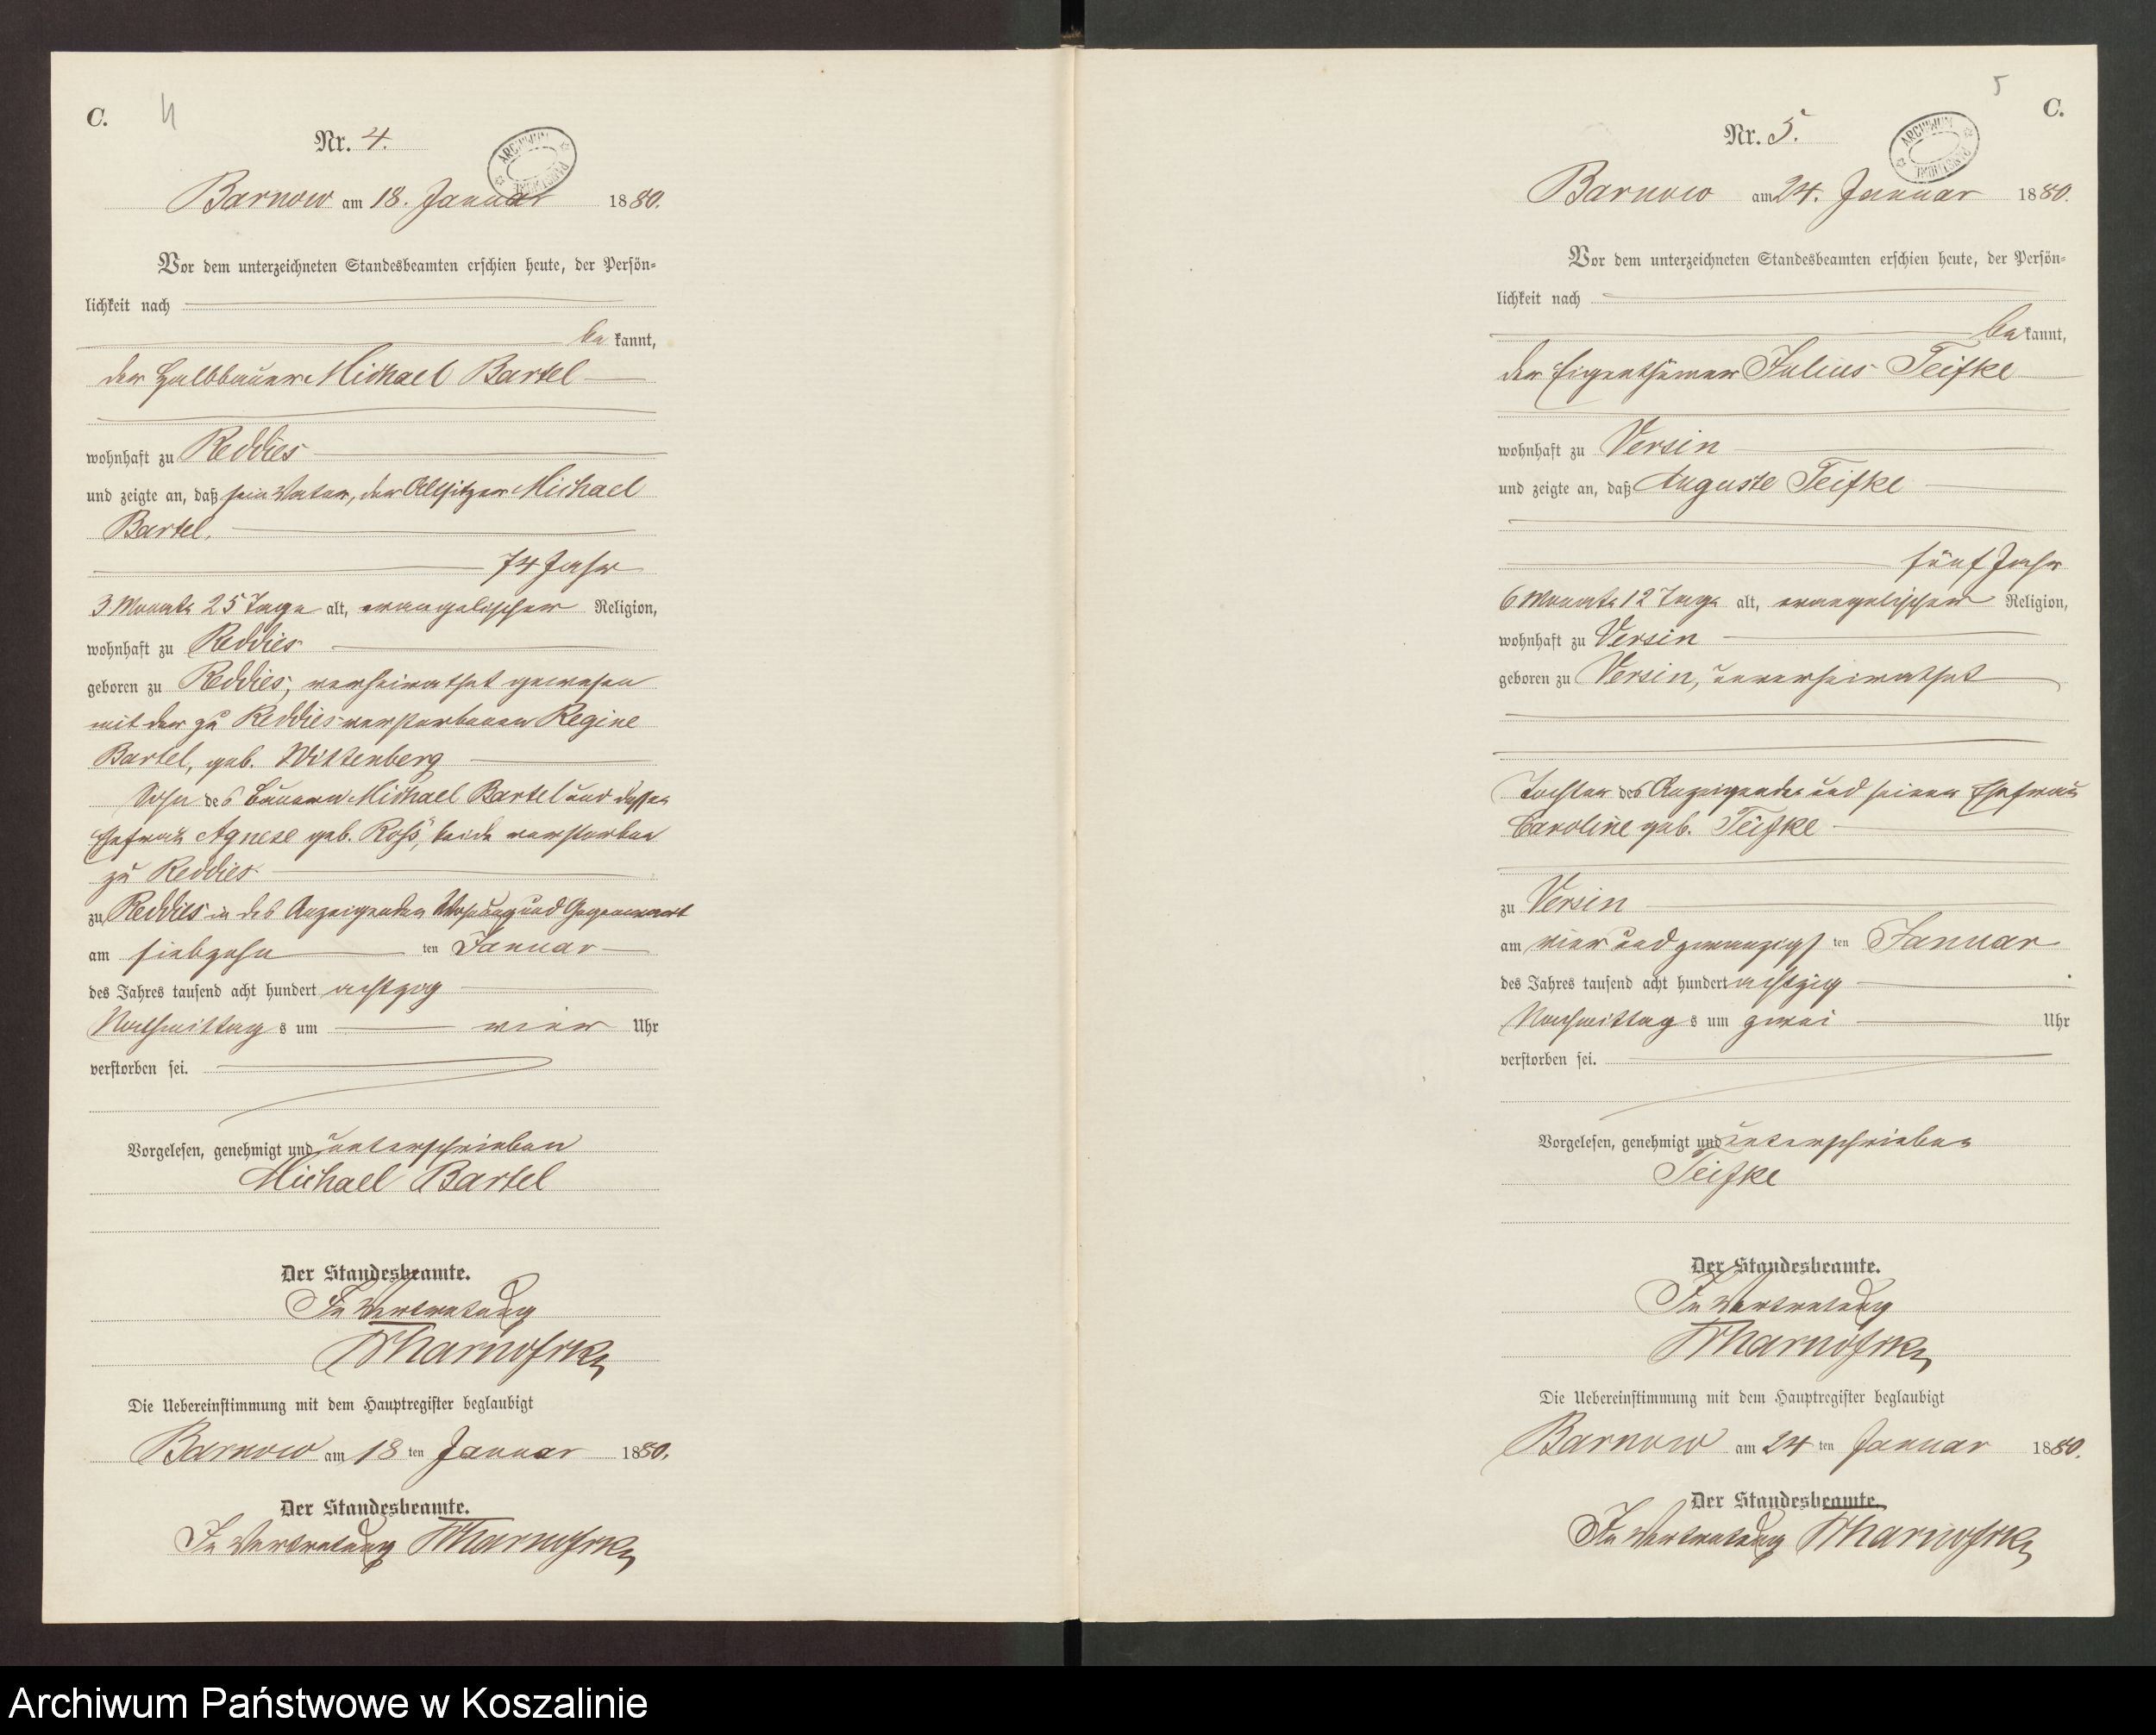 C. 4
Nr. 4.
ARCHIWUM PAŃSTWOWE
Barnow am 18. Januar 1880.
Vor dem unterzeichneten Standesbeamten erschien heute, der Persön-
lichkeit nach
be kannt,
der Halbbauer Michael Bartel
wohnhaft zu Reddies
und zeigte an, daß sein Vater, der Altsitzer Michael
Bartel,
74 Jahr
3 Monate 25 Tage alt, evangelischer Religion,
wohnhaft zu Reddies
geboren zu Reddies, verheirathet gewesen
mit der zu Reddies verstorbenen Regine
Bartel, geb. Wittenberg
Sohn des Bauern Michael Bartel und dessen
Ehefrau Agnese geb. Roß, beide verstorben
zu Reddies
zu Reddies in des Anzeigenden Wohnung und Gegenwart
am siebzehn ten Januar
des Jahres tausend acht hundert achtzig
Nachmittag s um vier Uhr
verstorben sei.
Vorgelesen, genehmigt und unterschrieben
Michael Bartel
Der Standesbeamte.
In Vertretung
Die Uebereinstimmung mit dem Hauptregister beglaubigt
Barnow am 18 ten Januar 1880.
Der Standesbeamte.
In Vertretung
5 C.
Nr. 5.
ARCHIWUM PAŃSTWOWE
Barnow am 24. Januar 1880.
Vor dem unterzeichneten Standesbeamten erschien heute, der Persön-
lichkeit nach
be kannt,
der Eigenthümer Julius Teifke
wohnhaft zu Versin
und zeigte an, daß Auguste Teifke
fünf Jahr
6 Monate 12 Tage alt, evangelischer Religion,
wohnhaft zu Versin
geboren zu Versin, unverheirathet
Tochter des Anzeigenden und seiner Ehefrau
Caroline geb. Teifke
zu Versin
am vier und zwanzigs ten Januar
des Jahres tausend acht hundert achtzig
Nachmittag s um zwei Uhr
verstorben sei.
Vorgelesen, genehmigt und unterschrieben
Teifke
Der Standesbeamte.
In Vertretung
Die Uebereinstimmung mit dem Hauptregister beglaubigt
Barnow am 24 ten Januar 1880.
Der Standesbeamte.
In Vertretung
Archiwum Państwowe w Koszalinie